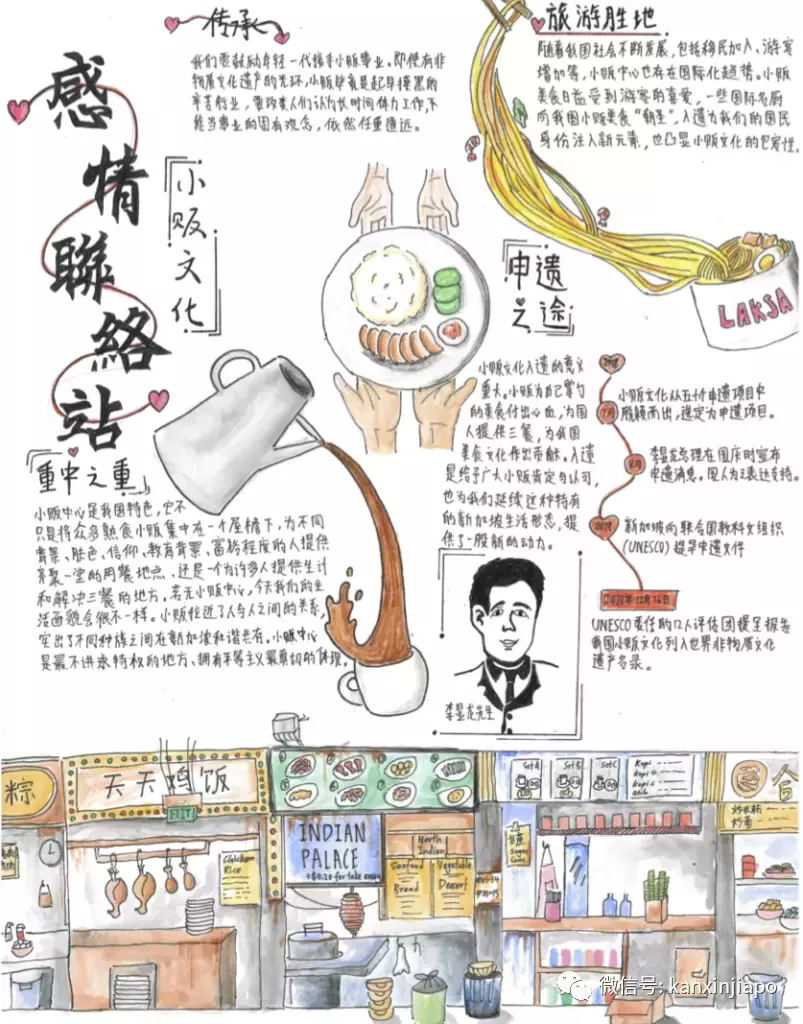 感情聯絡站
小贩文化
传承
我们要鼓励年轻一代接手小贩事业。即使有非
物质文化遗产的光环，小贩毕竟是起早摸黑的
辛苦行业，要改变人们认为长时间体力工作，不
能当事业的固有观念，依然任重道远。
旅游胜地
随着我国社会不断发展，包括移民加入、游客
增加等，小贩中心也存在国际化趋势。小贩
美食日益受到游客的喜爱，一些国际名厨
向我国小贩美食“朝圣”，入遗为我们的国民
身份注入新元素，也凸显小贩文化的包容性。
LAKSA
重中之重
小贩中心是我国特色，它不
只是将众多熟食小贩集中在一个屋檐下，为不同
背景、肤色、信仰、教育背景、富裕程度的人提供
齐聚一堂的用餐地点、还是一个为许多人提供生计
和解决三餐的地方。若无小贩中心，今天我们的生
活面貌会很不一样。小贩拉近了人与人之间的关系，
突出了不同种族之间在新加坡和谐共存。小贩中心
是最不讲求特权的地方、拥有平等主义最真切的体现。
申遗之途
小贩文化入遗的意义
重大。小贩为自己掌勺
的美食付出心血，为国
人提供三餐，为我国
美食文化作出贡献。入遗
是给予广大小贩肯定与认可，
也为我们延续这种特有
的新加坡生活形态，提
供了一股新的动力。
2018
7月
小贩文化从五十个申遗项目中
脱颖而出，选定为申遗项目。
8月
李显龙总理在国庆时宣布
申遗消息。国人为之表达支持。
2019
新加坡向联合国教科文组织
(UNESCO)提呈申遗文件
2020年12月16日
UNESCO委任的12人评估团提呈报告
我国小贩文化列入世界非物质文化
遗产名录。
李显龙先生
粽
天天鸡饭
EXIT
Chicken
Rice
INDIAN
PALACE
+$0.20 for take away
North
Indian
Seafood
Bread
Vegetable
Dessert
#01-14
#01-15
Set A
Set B
Set C
Kopi
Kopi O
Kopi C
Milo
甘蔗
Sugar
Cane
炒米粉
炒面
微信号: kanxinjiapo